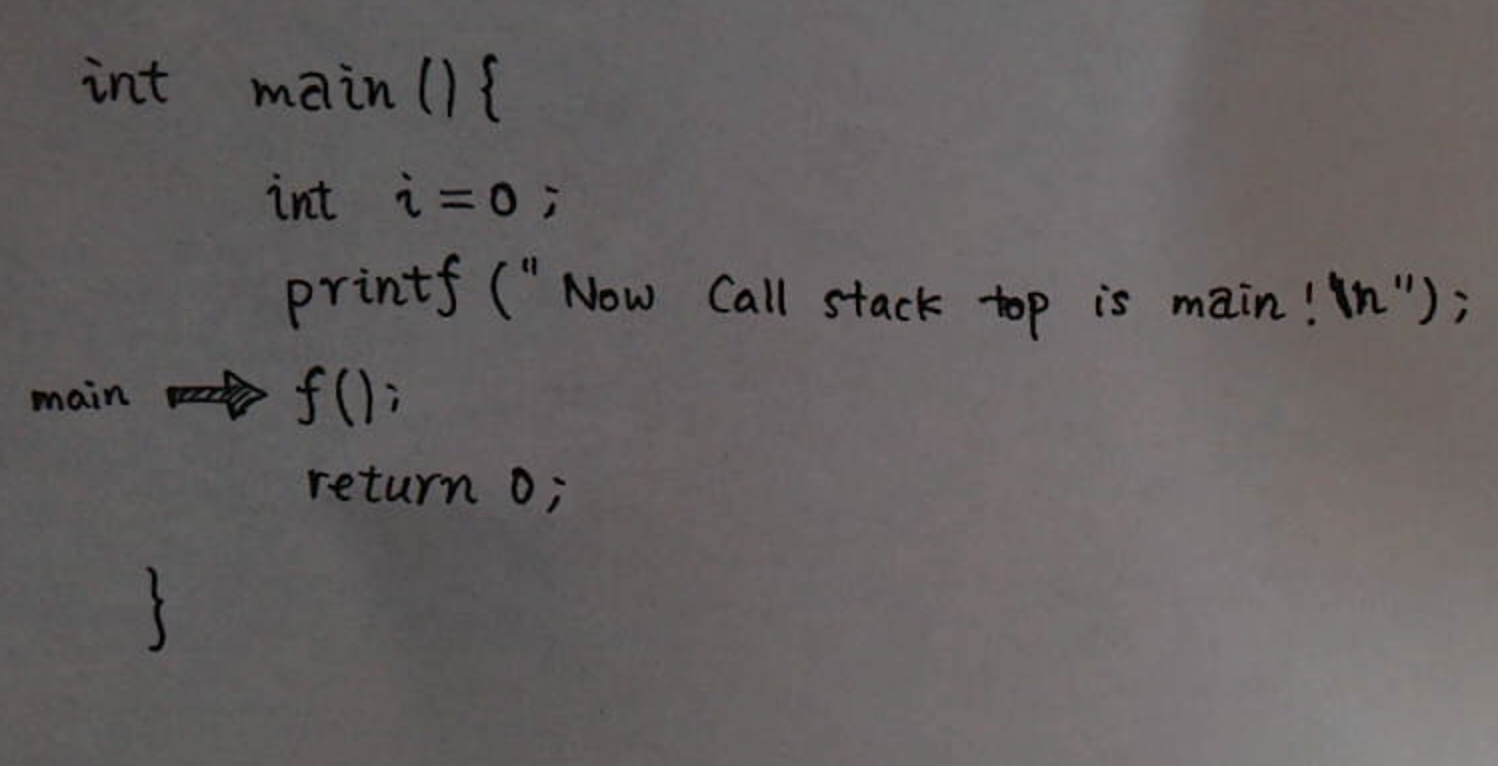 int main(){
int i=0;
printf("Now Call stack top is main!\n");
main f();
return 0;
}